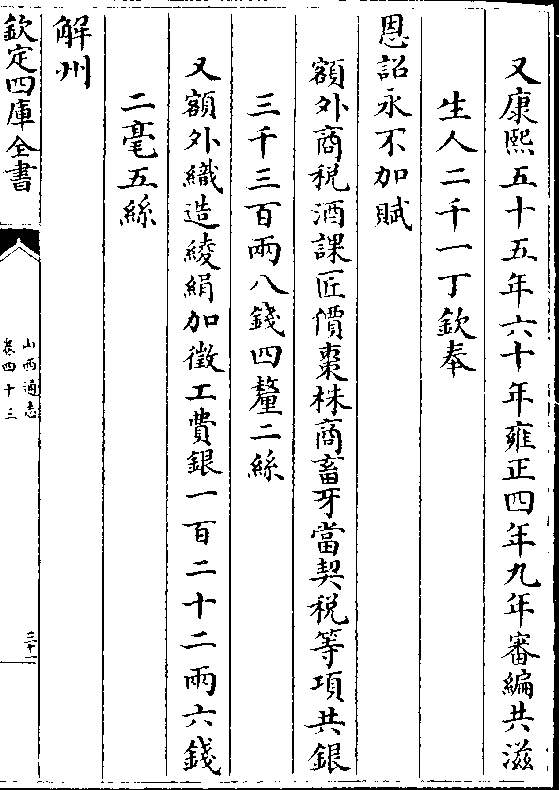 又康熙五十五年六十年雍正四年九年審編共滋
生人二千一丁欽奉
恩詔永不加賦
額外商税酒課匠價棗株商畜牙當契税等項共銀
三千三百兩八錢四釐二絲
又額外織造綾絹加徵工費銀一百二十二兩六錢
二毫五絲
解州
欽定四庫全書
山西通志
卷四十三
三十一